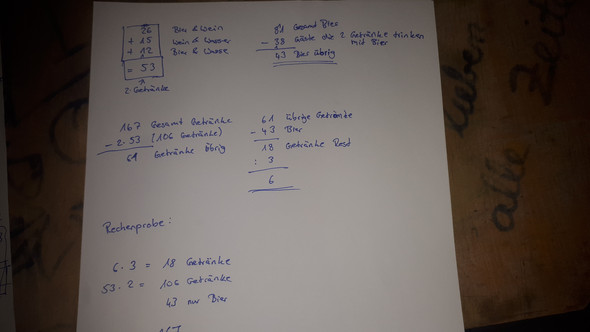 26 Bier & Wein
+ 15 Wein & Wasser
+ 12 Bier & Wasser
= 53
2 Getränke
81 Gesamt Bier
- 38 Gäste die 2 Getränke trinken mit Bier
43 Bier übrig
167 Gesamt Getränke
- 2·53 (106 Getränke)
61 Getränke übrig
61 übrige Getränke
- 43 Bier
18 Getränke Rest
: 3
6
Rechenprobe:
6·3 = 18 Getränke
53·2 = 106 Getränke
43 nur Bier
167
alle